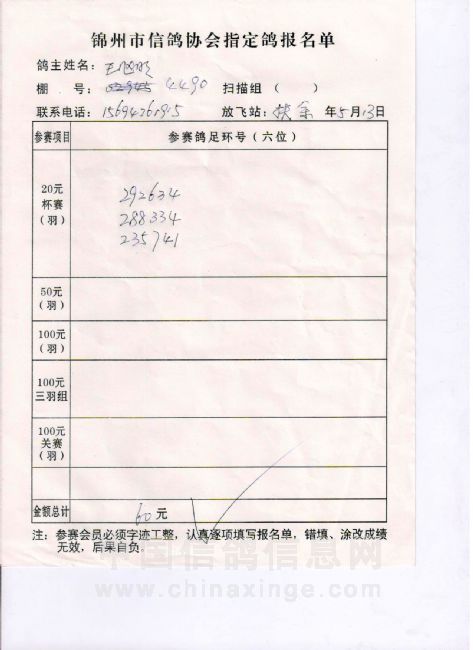 锦州市信鸽协会指定鸽报名单
鸽主姓名：王
棚 号： 4490 扫描组（ ）
联系电话：15694761915 放飞站：扶余 年5月13日
参赛项目 参赛鸽足环号（六位）
20元
杯赛
（羽）
292634
288334
235741
50元
（羽）
100元
（羽）
100元
三羽组
100元
关赛
（羽）
金额总计 60元
注：参赛会员必须字迹工整，认真逐项填写报名单，错填、涂改成绩
无效，后果自负
中国信鸽信息网
www.chinaxinge.com